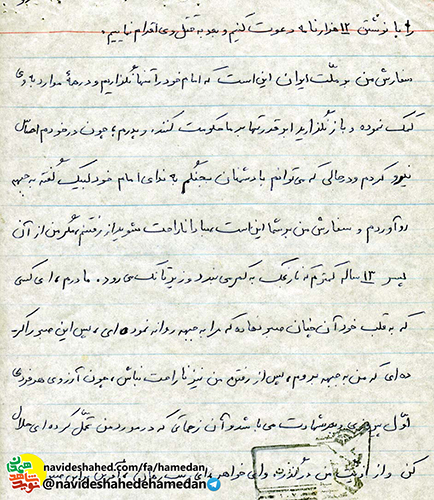 را با نوشتن ۱۲ هزار نامه دعوت کنیم و بعد به قتل وی اقدام نماییم.
سفارش من به ملت ایران این است که امام خود را تنها نگذاریم و در همهٔ موارد به وی
کمک نموده و باز نگذارید ابرقدرتها بر ما حکومت کنند، و پدرم، چون در خودم احساس
نیرو کردم و در حالی که می‌توانم با دشمنان بجنگم به ندای امام خود لبیک گفته به جبهه
رو آوردم و سفارش من به شما این است، مبادا ناراحت شوید از رفتنم، مگر من از آن
پسر ۱۳ ساله کمترم که نارنجک به کمر می‌بندد و زیر تانک می‌رود. مادرم، ای کسی
که به قلب خود آن چنان صبر نهاده که مرا به جبهه روانه نموده‌ای، پس این صبر را کر
ده‌ای که من به جبهه بروم، پس از رفتن من نیز ناراحت نباش، چون آرزوی هر فردی
اول پیروزی و بعد شهادت می‌باشد و آن زحماتی که در مورد من تحمل کرده‌ای حلال
کن و از من در گذر، و ای خواهر
navideshahed.com/fa/hamedan
@navideshahedehamedan